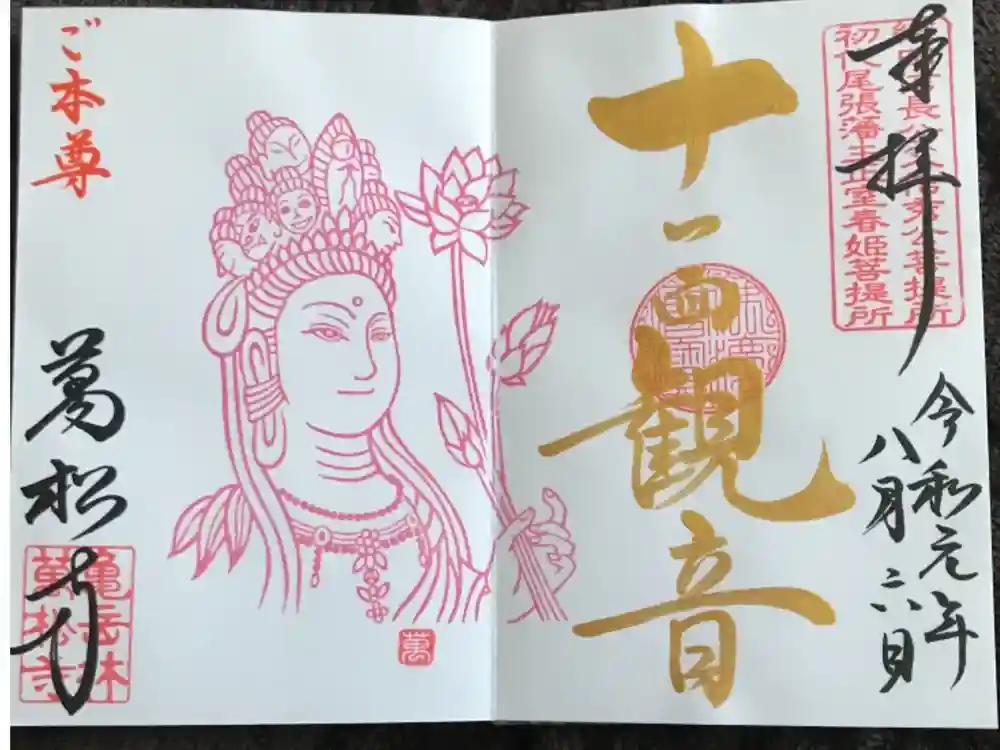 奉拝
初代尾張藩主正室春姫菩提所
令和元年
八月二六日
十一面観音
ご本尊
萬松寺
亀岳林
萬松寺
萬